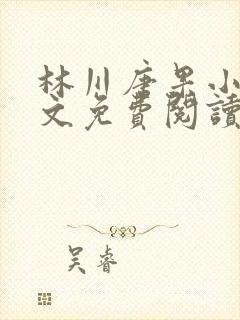 林川唐果小
文免費閱讀
吴睿